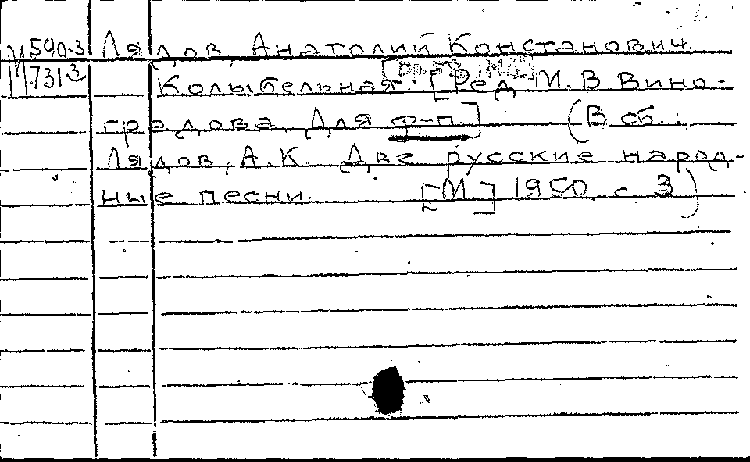 М 590-3 Лядов, Анатолий Константинович
М 731 3 Колыбельная. [Ред. М. В. Вино-
градова. Для ф-п.] (В сб.:
Лядов, А. К. Две русские народ-
ные песни. [М.] 1950, с. 3)